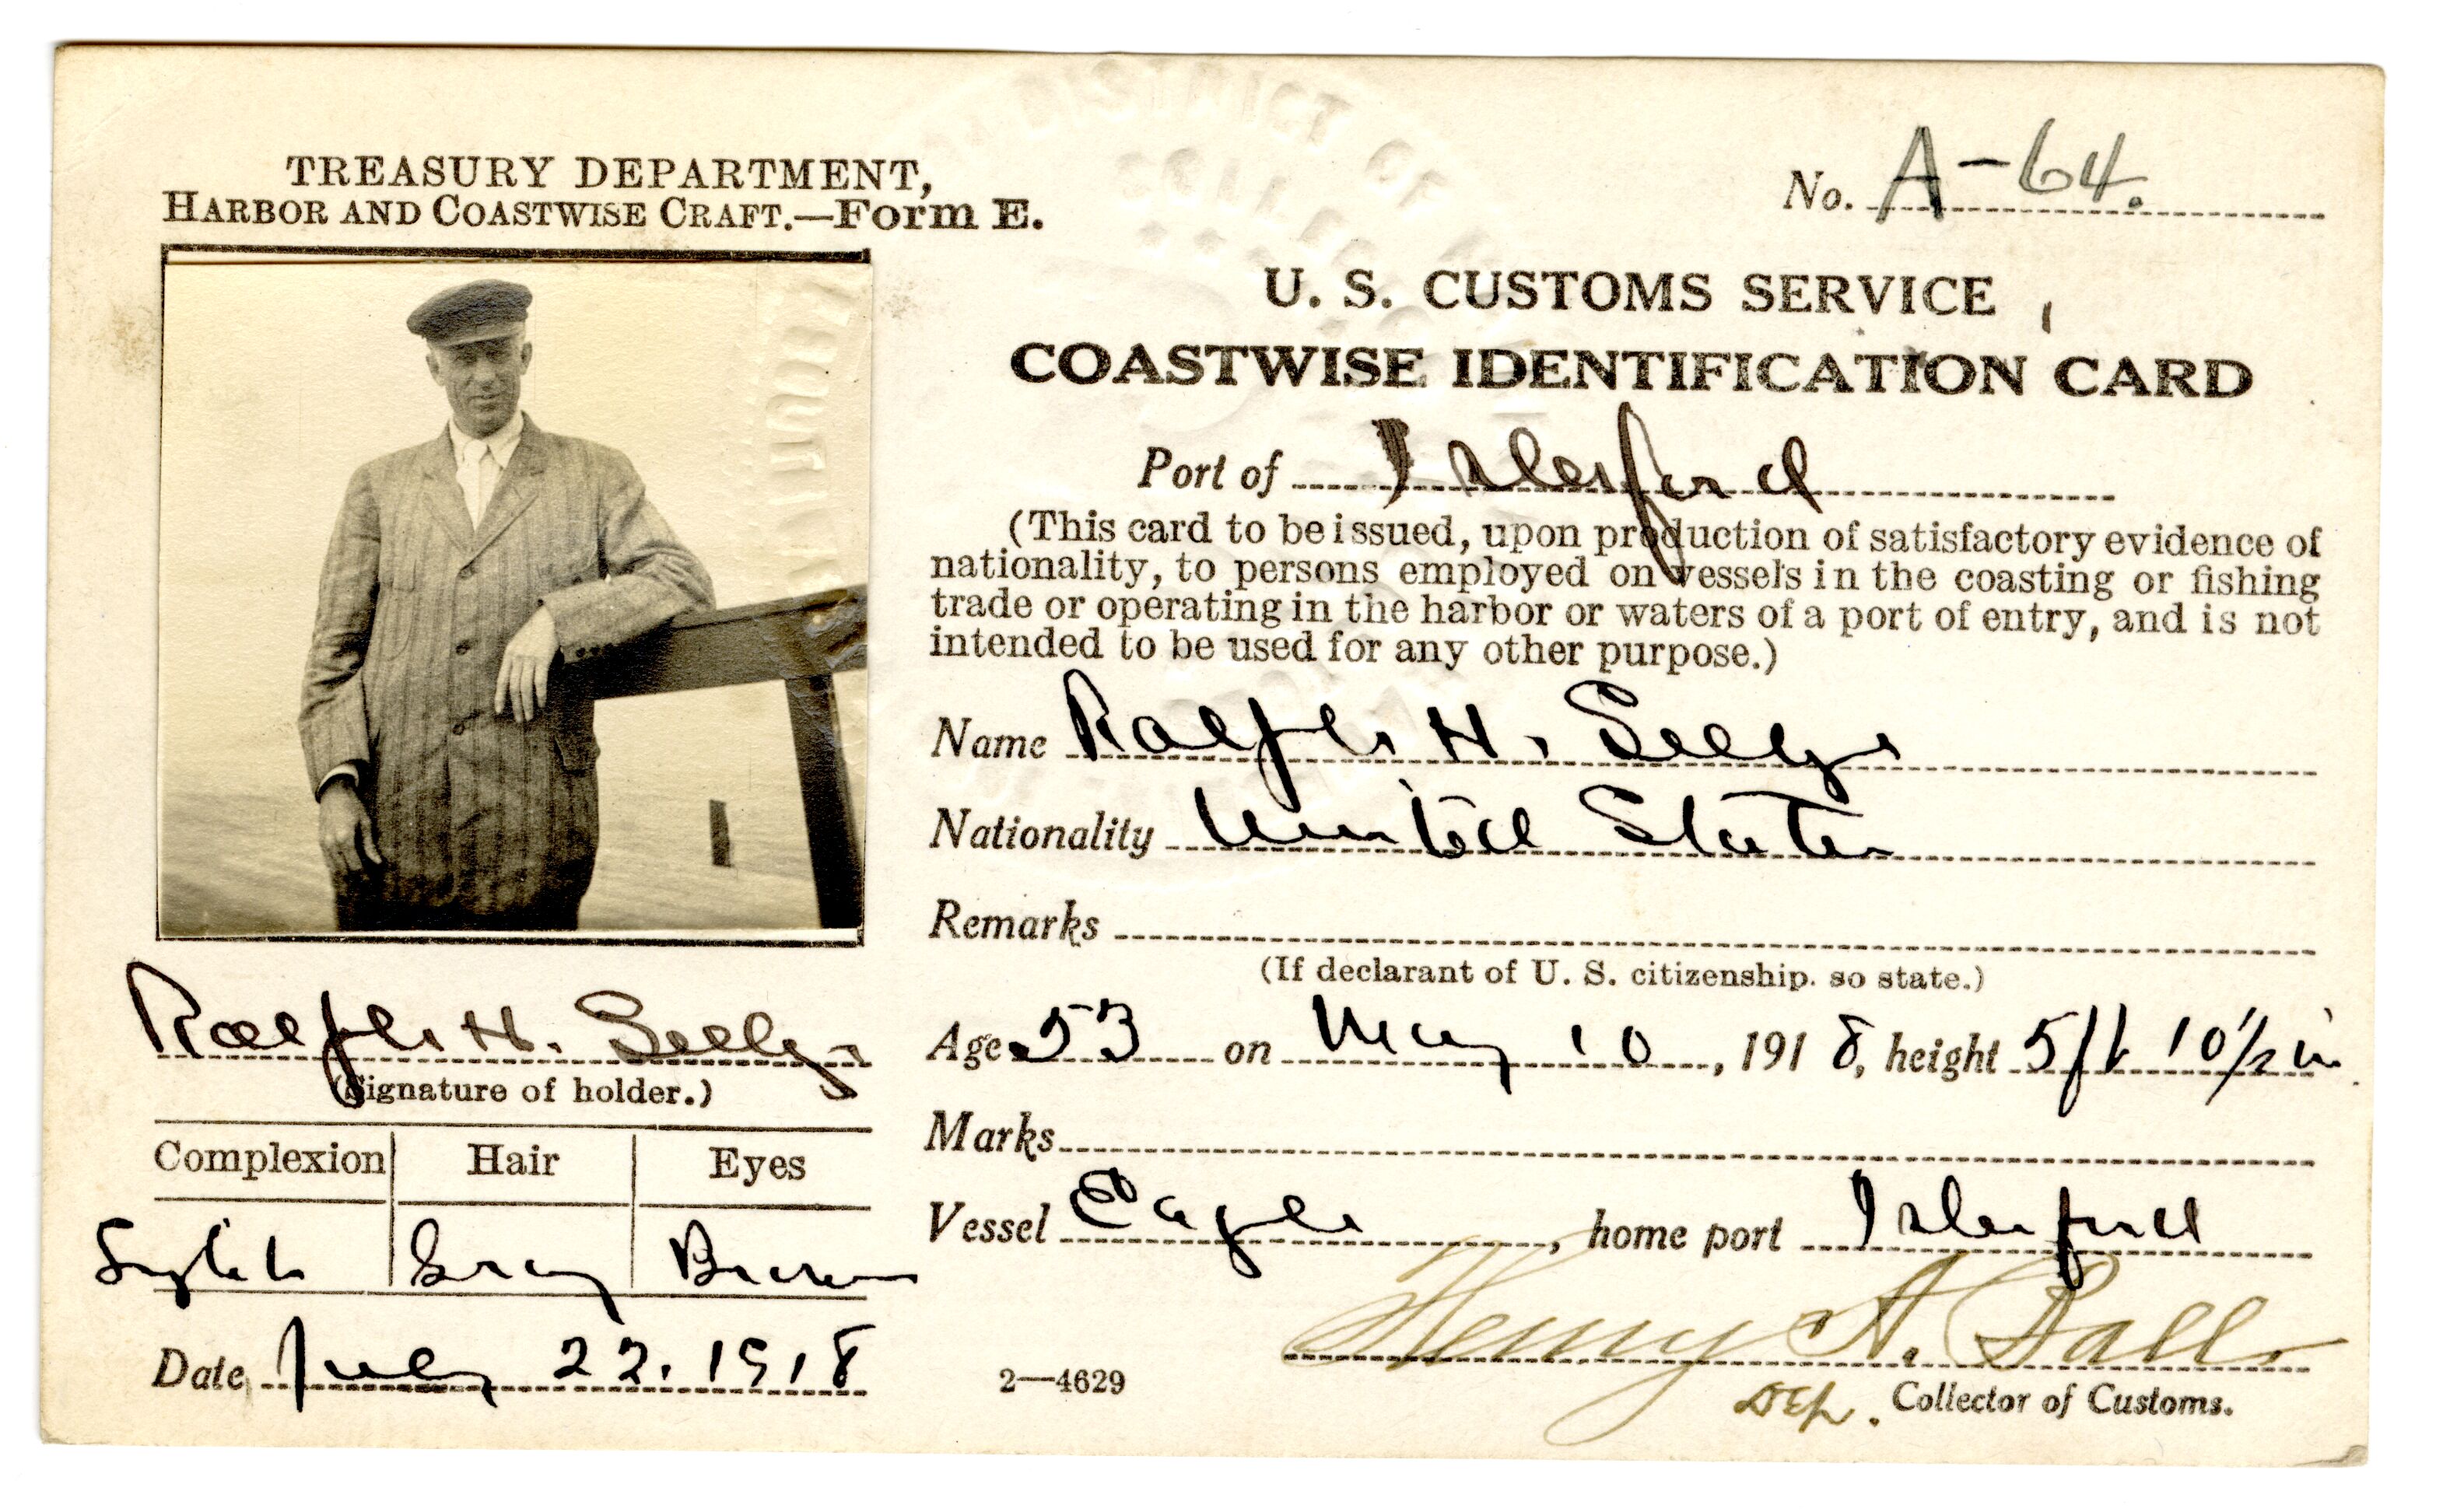 DISTRICT OF
TREASURY DEPARTMENT,
HARBOR AND COASTWISE CRAFT.—Form E.
No. A-64.
U. S. CUSTOMS SERVICE
COASTWISE IDENTIFICATION CARD
Port of Islesford
(This card to be issued, upon production of satisfactory evidence of
nationality, to persons employed on vessels in the coasting or fishing
trade or operating in the harbor or waters of a port of entry, and is not
intended to be used for any other purpose.)
Name Ralph H. Seelye
Nationality United States
Remarks
(If declarant of U. S. citizenship. so state.)
Age 53 on May 10, 1918, height 5 ft 10 1/2 in
Marks
Vessel Eagle, home port Islesford
Henry A. Ball
Dep. Collector of Customs.
2—4629
Ralph H. Seelye
(Signature of holder.)
Complexion Hair Eyes
Light Gray Brown
Date July 22. 1918